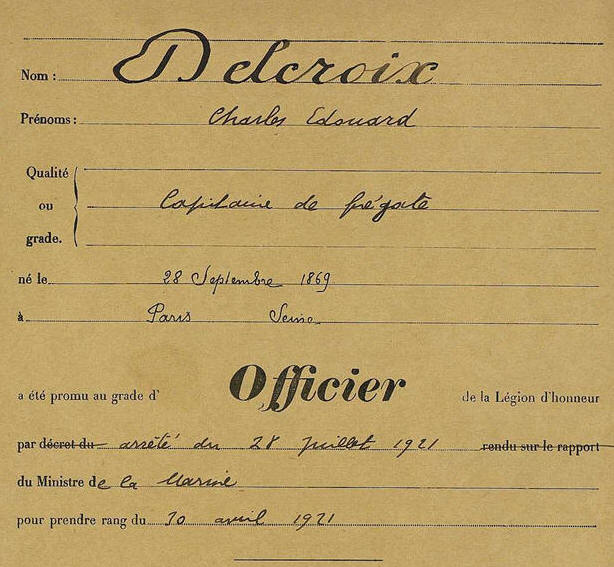 Nom : Delcroix
Prénoms : Charles Edouard
Qualité
ou Capitaine de frégate
grade.
né le 28 Septembre 1869
à Paris Seine
a été promu au grade d' Officier de la Légion d'honneur
par décret du arrêté du 28 juillet 1921 rendu sur le rapport
du Ministre de la Marine
pour prendre rang du 30 avril 1921